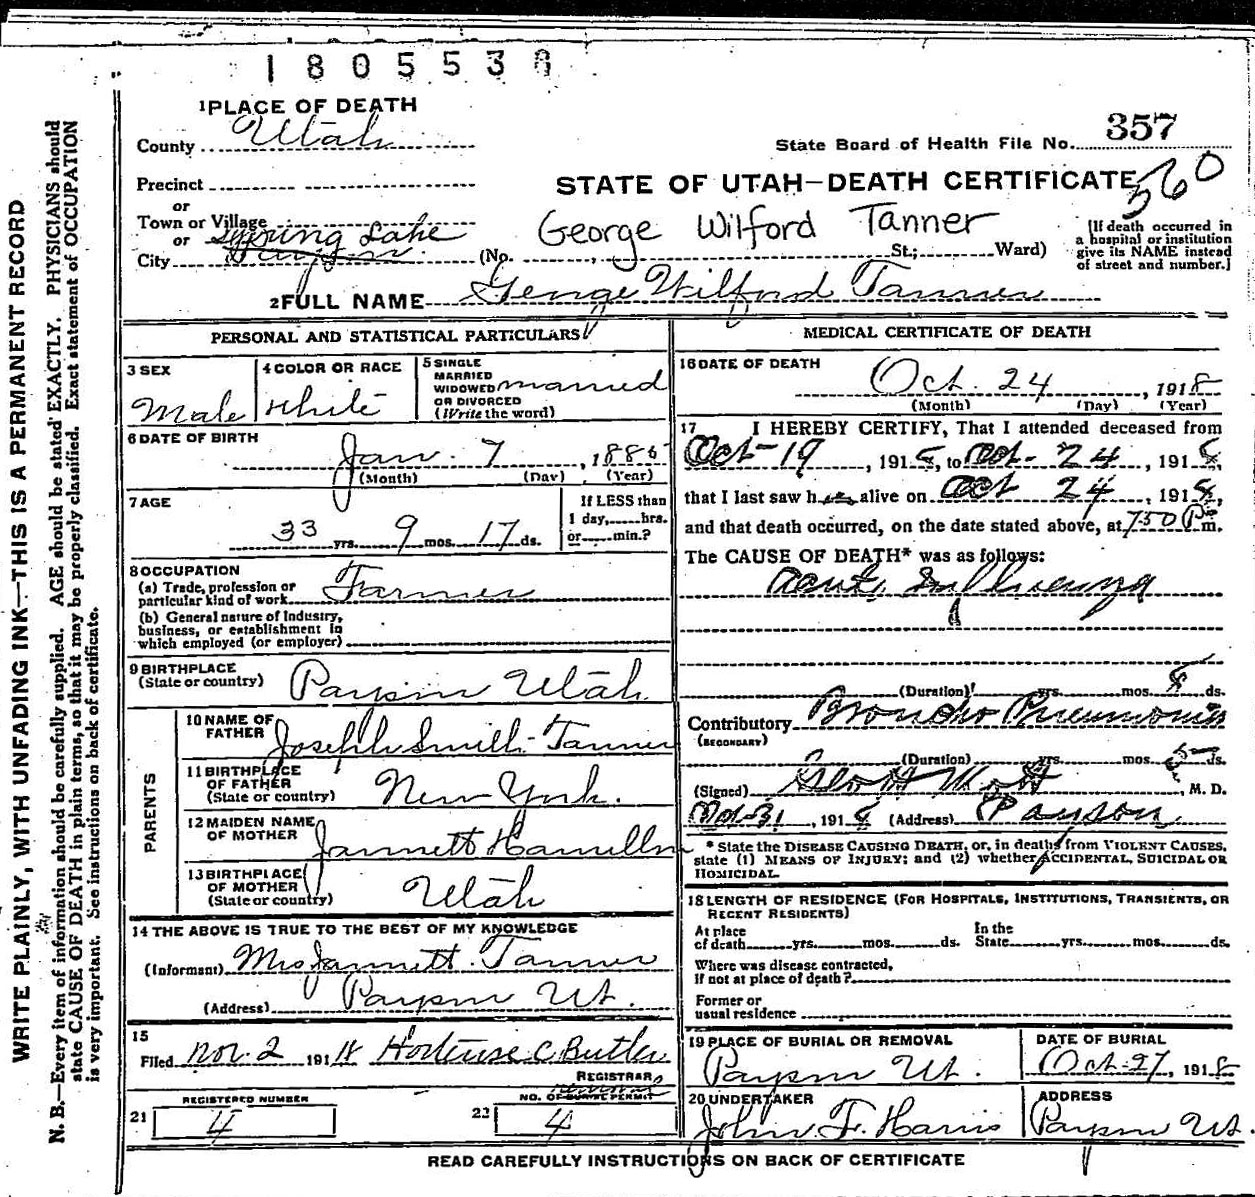 1805538
1 PLACE OF DEATH
County Utah
State Board of Health File No. 357
Precinct
STATE OF UTAH—DEATH CERTIFICATE 560
or
Town or Village
or Spring Lake
City Payson (No. St.; Ward)
George Wilford Tanner
[If death occurred in a hospital or institution give its NAME instead of street and number.]
2 FULL NAME George Wilford Tanner
PERSONAL AND STATISTICAL PARTICULARS
3 SEX Male
4 COLOR OR RACE White
5 SINGLE MARRIED WIDOWED OR DIVORCED (Write the word) married
6 DATE OF BIRTH
Jan. 7, 1885
(Month) (Day) (Year)
7 AGE
33 yrs. 9 mos. 17 ds.
If LESS than
1 day, hrs.
or min.?
8 OCCUPATION
(a) Trade, profession or
particular kind of work Farmer
(b) General nature of industry,
business, or establishment in
which employed (or employer)
9 BIRTHPLACE
(State or country) Payson Utah
PARENTS
10 NAME OF
FATHER Joseph Smith Tanner
11 BIRTHPLACE
OF FATHER
(State or country) New York.
12 MAIDEN NAME
OF MOTHER Jannett Hamillon
13 BIRTHPLACE
OF MOTHER
(State or country) Utah
14 THE ABOVE IS TRUE TO THE BEST OF MY KNOWLEDGE
(Informant) Mrs Jannett. Tanner
(Address) Payson Ut.
15
Filed Nov. 2 1918 Hortense C. Butler
REGISTRAR
REGISTERED NUMBER
21 4
NO. OF BURIAL PERMIT
22 4
MEDICAL CERTIFICATE OF DEATH
16 DATE OF DEATH
Oct. 24, 1918
(Month) (Day) (Year)
17 I HEREBY CERTIFY, That I attended deceased from
Oct-19, 1918, to Oct- 24, 1918,
that I last saw h alive on Oct 24, 1918,
and that death occurred, on the date stated above, at 750 P m.
The CAUSE OF DEATH* was as follows:
acute Influenza
(Duration) yrs. mos. ds.
Contributory Broncho Pneumonia
(SECONDARY)
(Duration) yrs. mos. 5 ds.
(Signed) , M. D.
, 1918 (Address) Payson
* State the DISEASE CAUSING DEATH, or, in deaths from VIOLENT CAUSES,
state (1) MEANS OF INJURY; and (2) whether ACCIDENTAL, SUICIDAL OR
HOMICIDAL.
18 LENGTH OF RESIDENCE (FOR HOSPITALS, INSTITUTIONS, TRANSIENTS, OR
RECENT RESIDENTS)
At place
of death yrs. mos. ds.
In the
State yrs. mos. ds.
Where was disease contracted,
If not at place of death?
Former or
usual residence
19 PLACE OF BURIAL OR REMOVAL
Payson Ut.
DATE OF BURIAL
Oct-27, 1918
20 UNDERTAKER
John F. Harris
ADDRESS
Payson Ut.
READ CAREFULLY INSTRUCTIONS ON BACK OF CERTIFICATE
WRITE PLAINLY, WITH UNFADING INK—THIS IS A PERMANENT RECORD
N. B.—Every item of information should be carefully supplied. AGE should be stated EXACTLY. PHYSICIANS should
state CAUSE OF DEATH in plain terms, so that it may be properly classified. Exact statement of OCCUPATION
is very important. See instructions on back of certificate.